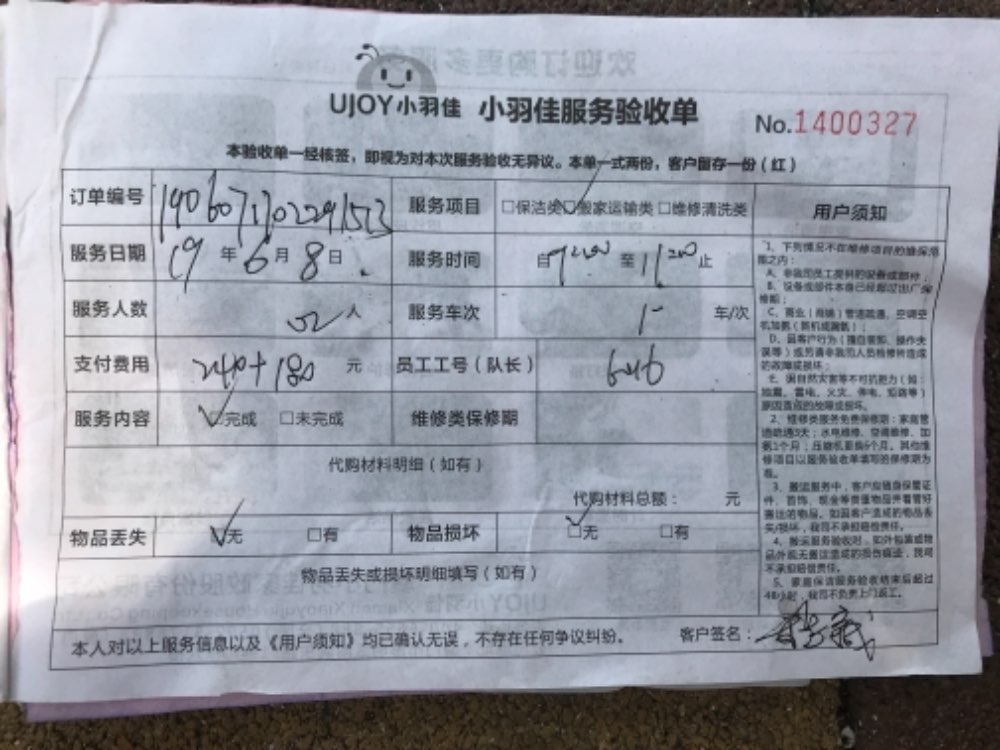 UJOY小羽佳 小羽佳服务验收单
No.1400327
本验收单一经核签，即视为对本次服务验收无异议。本单一式两份，客户留存一份（红）
订单编号
服务项目 □保洁类 □搬家运输类 □维修清洗类
用户须知
服务日期 19年6月8日
服务时间 自 至 止
服务人数 人
服务车次 车/次
支付费用 240+180 元
员工工号（队长）
服务内容 ☑完成 □未完成
维修类保修期
代购材料明细（如有）
代购材料总额： 元
物品丢失 ☑无 □有
物品损坏 ☑无 □有
物品丢失或损坏明细填写（如有）
1、下列情况不在维修项目的维保范
围之内：
A、非我司员工提供的设备或部件；
B、设备或部件本身已经超过出厂保
修期；
C、商业（商铺）管道疏通、空调空
机加氨（
D、因客户行为（擅自装卸、操作失
误等）或另请非我司人员检修所造成
的故障或损坏；
E、因自然灾害等不可抗拒力（如：
地震、雷电、火灾、停电、短路等）
原因造成的故障或损坏。
2、维修类服务免费保修期：家庭管
3、搬运服务中，客户应随身保管证
件、首饰、现金等贵重物品并看管好
搬运的物品。如因客户造成的物品丢
失/损坏，我司不承担赔偿责任。
4、搬运服务验收时，如外包装或物
品外观无搬运造成的损伤痕迹，我司
不承担赔偿责任。
5、家庭保洁服务验收结束后超过
48小时，我司不负责上门返工。
本人对以上服务信息以及《用户须知》均已确认无误，不存在任何争议纠纷。
客户签名：